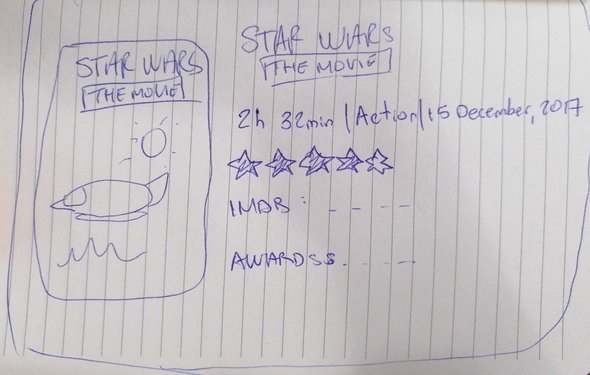 STAR WARS
THE MOVIE
STAR WARS
THE MOVIE
2h 32min | Action | 15 December, 2017
IMDB : - - - -
AWARDSS. - - - -